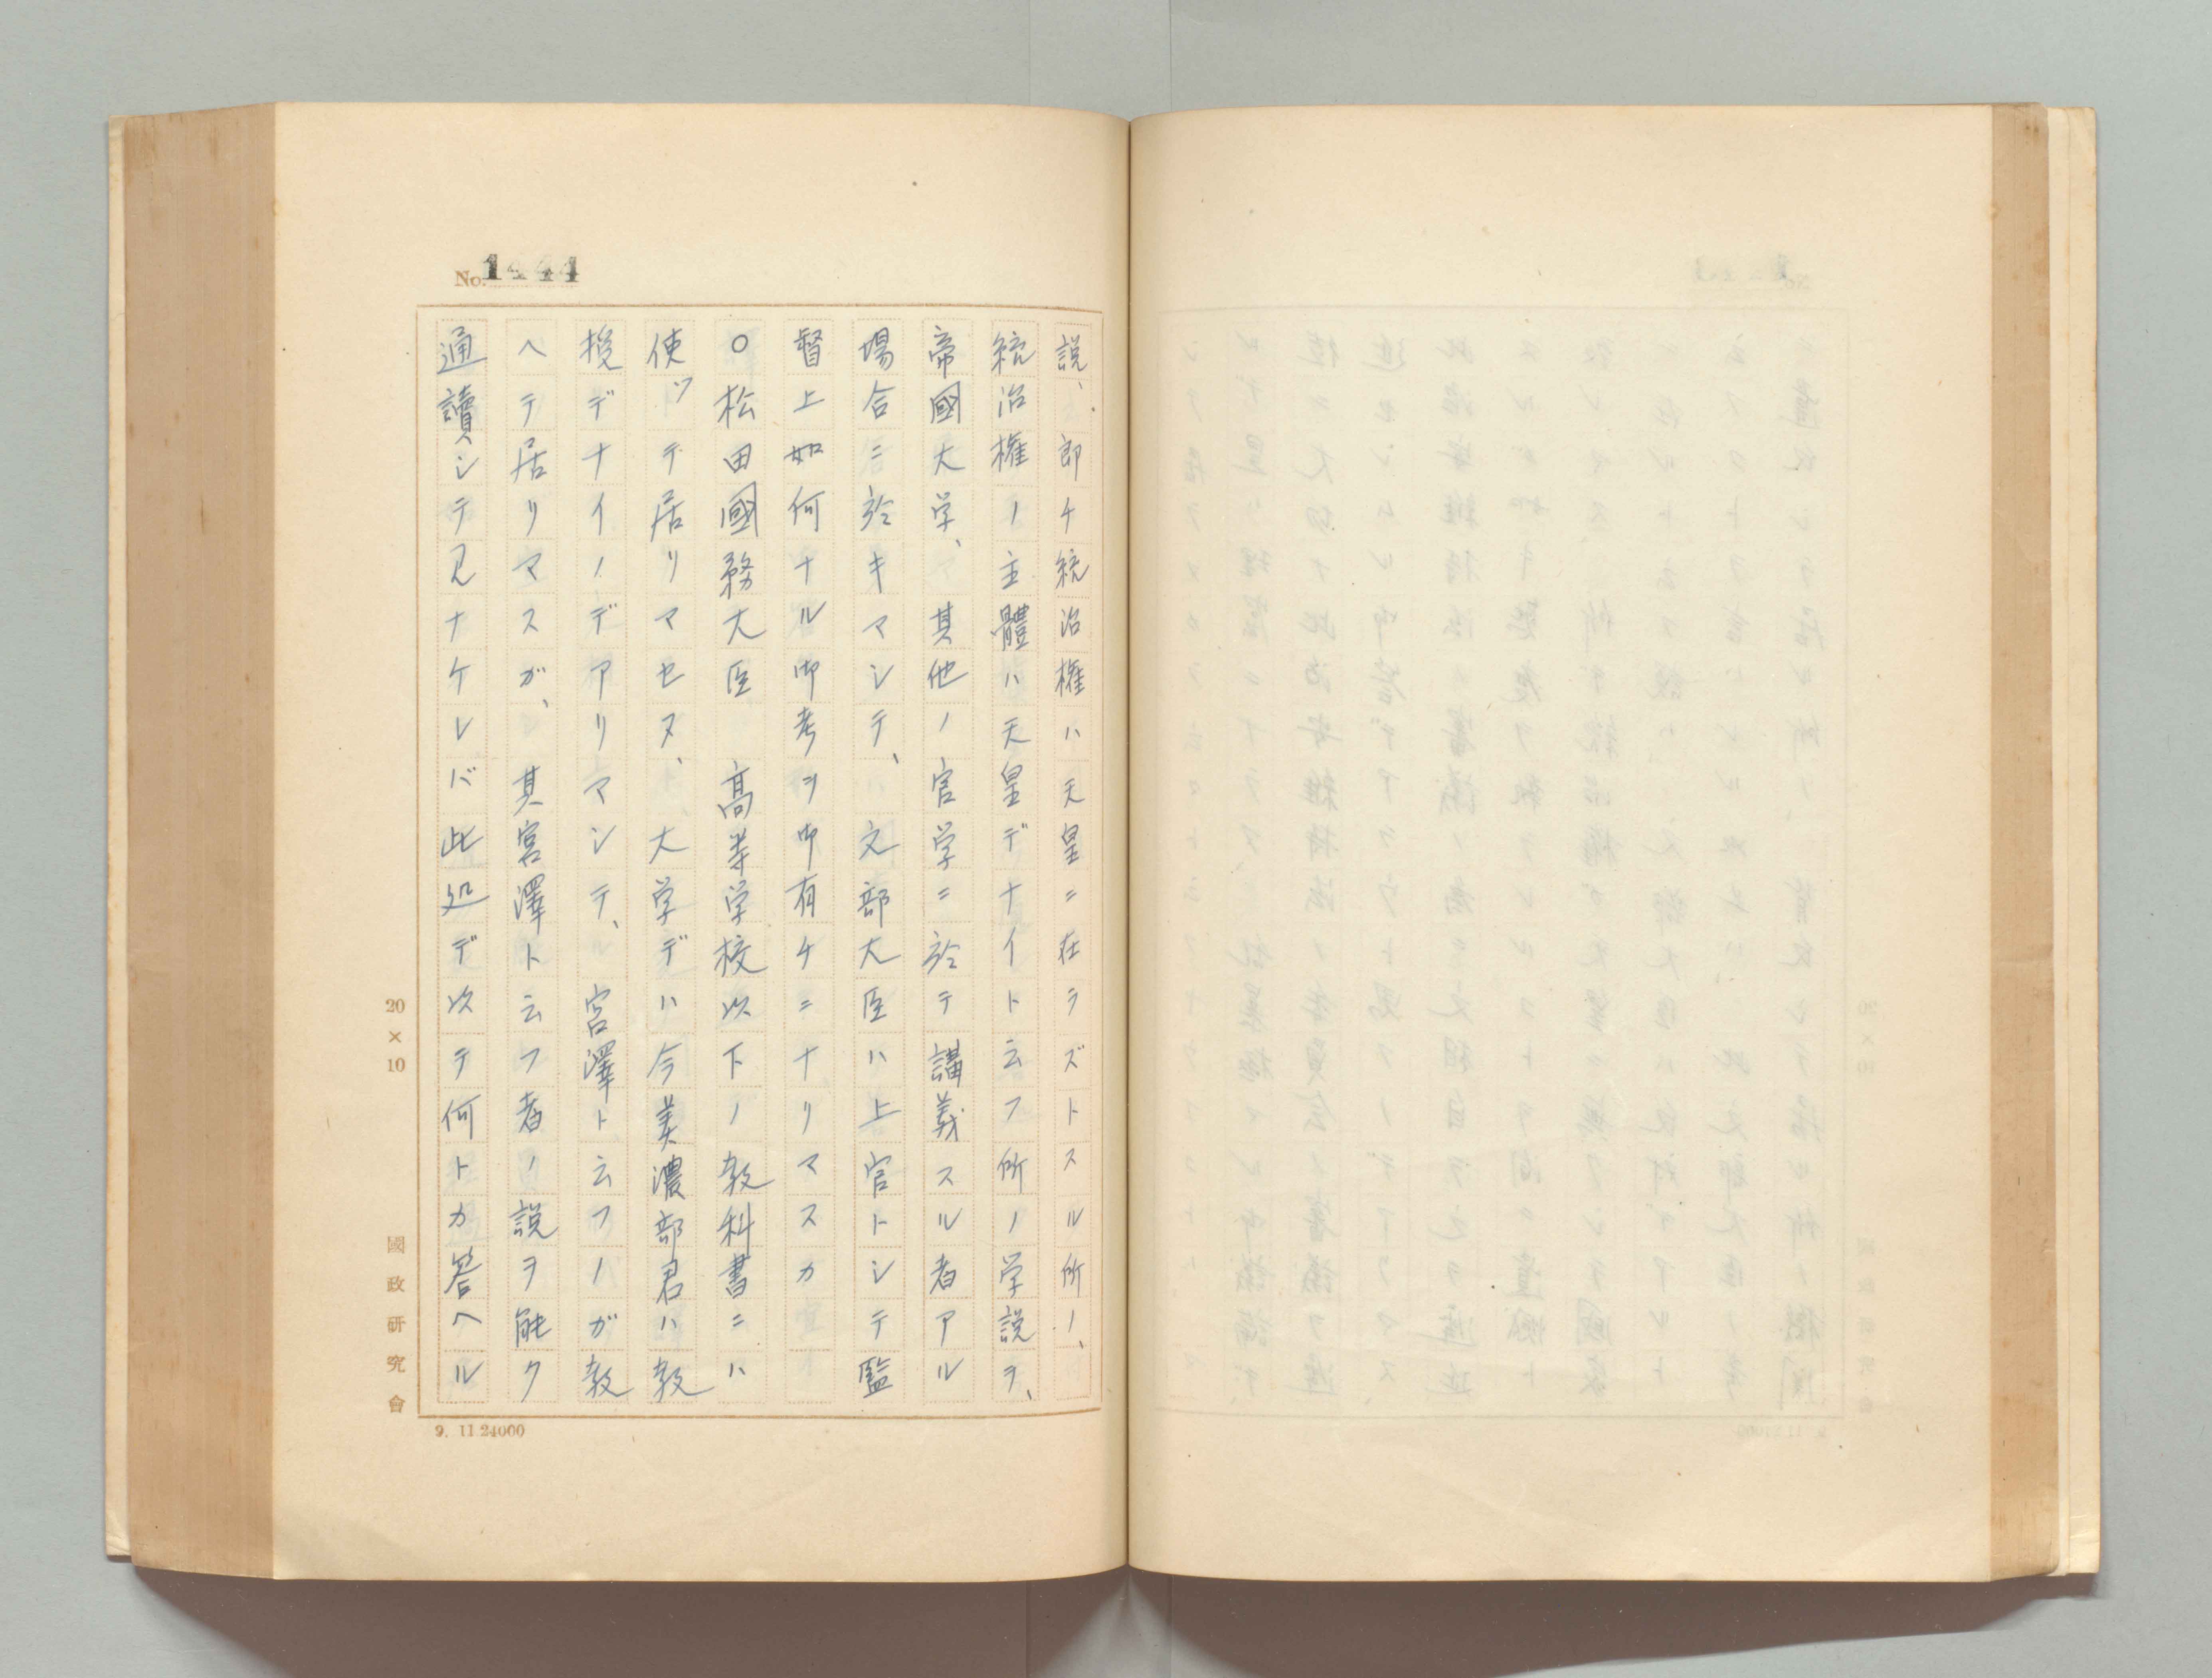 No. 1444
説、即チ統治権ハ天皇ニ在ラズトスル所ノ、
統治権ノ主體ハ天皇デナイト云フ所ノ学説ヲ、
帝國大学、其他ノ官学ニ於テ講義スル者アル
場合ニ於キマシテ、文部大臣ハ上官トシテ監
督上如何ナル御考ヲ御有チニナリマスカ
○松田國務大臣 高等学校以下ノ教科書ニハ
使ツテ居リマセヌ、大学デハ今美濃部君ハ教
授デナイノデアリマシテ、宮澤ト云フノガ教
ヘテ居リマスガ、其宮澤ト云フ者ノ説ヲ能ク
通讀シテ見ナケレバ此処デ以テ何トカ答ヘル
20×10
國政研究會
9. 11 24000